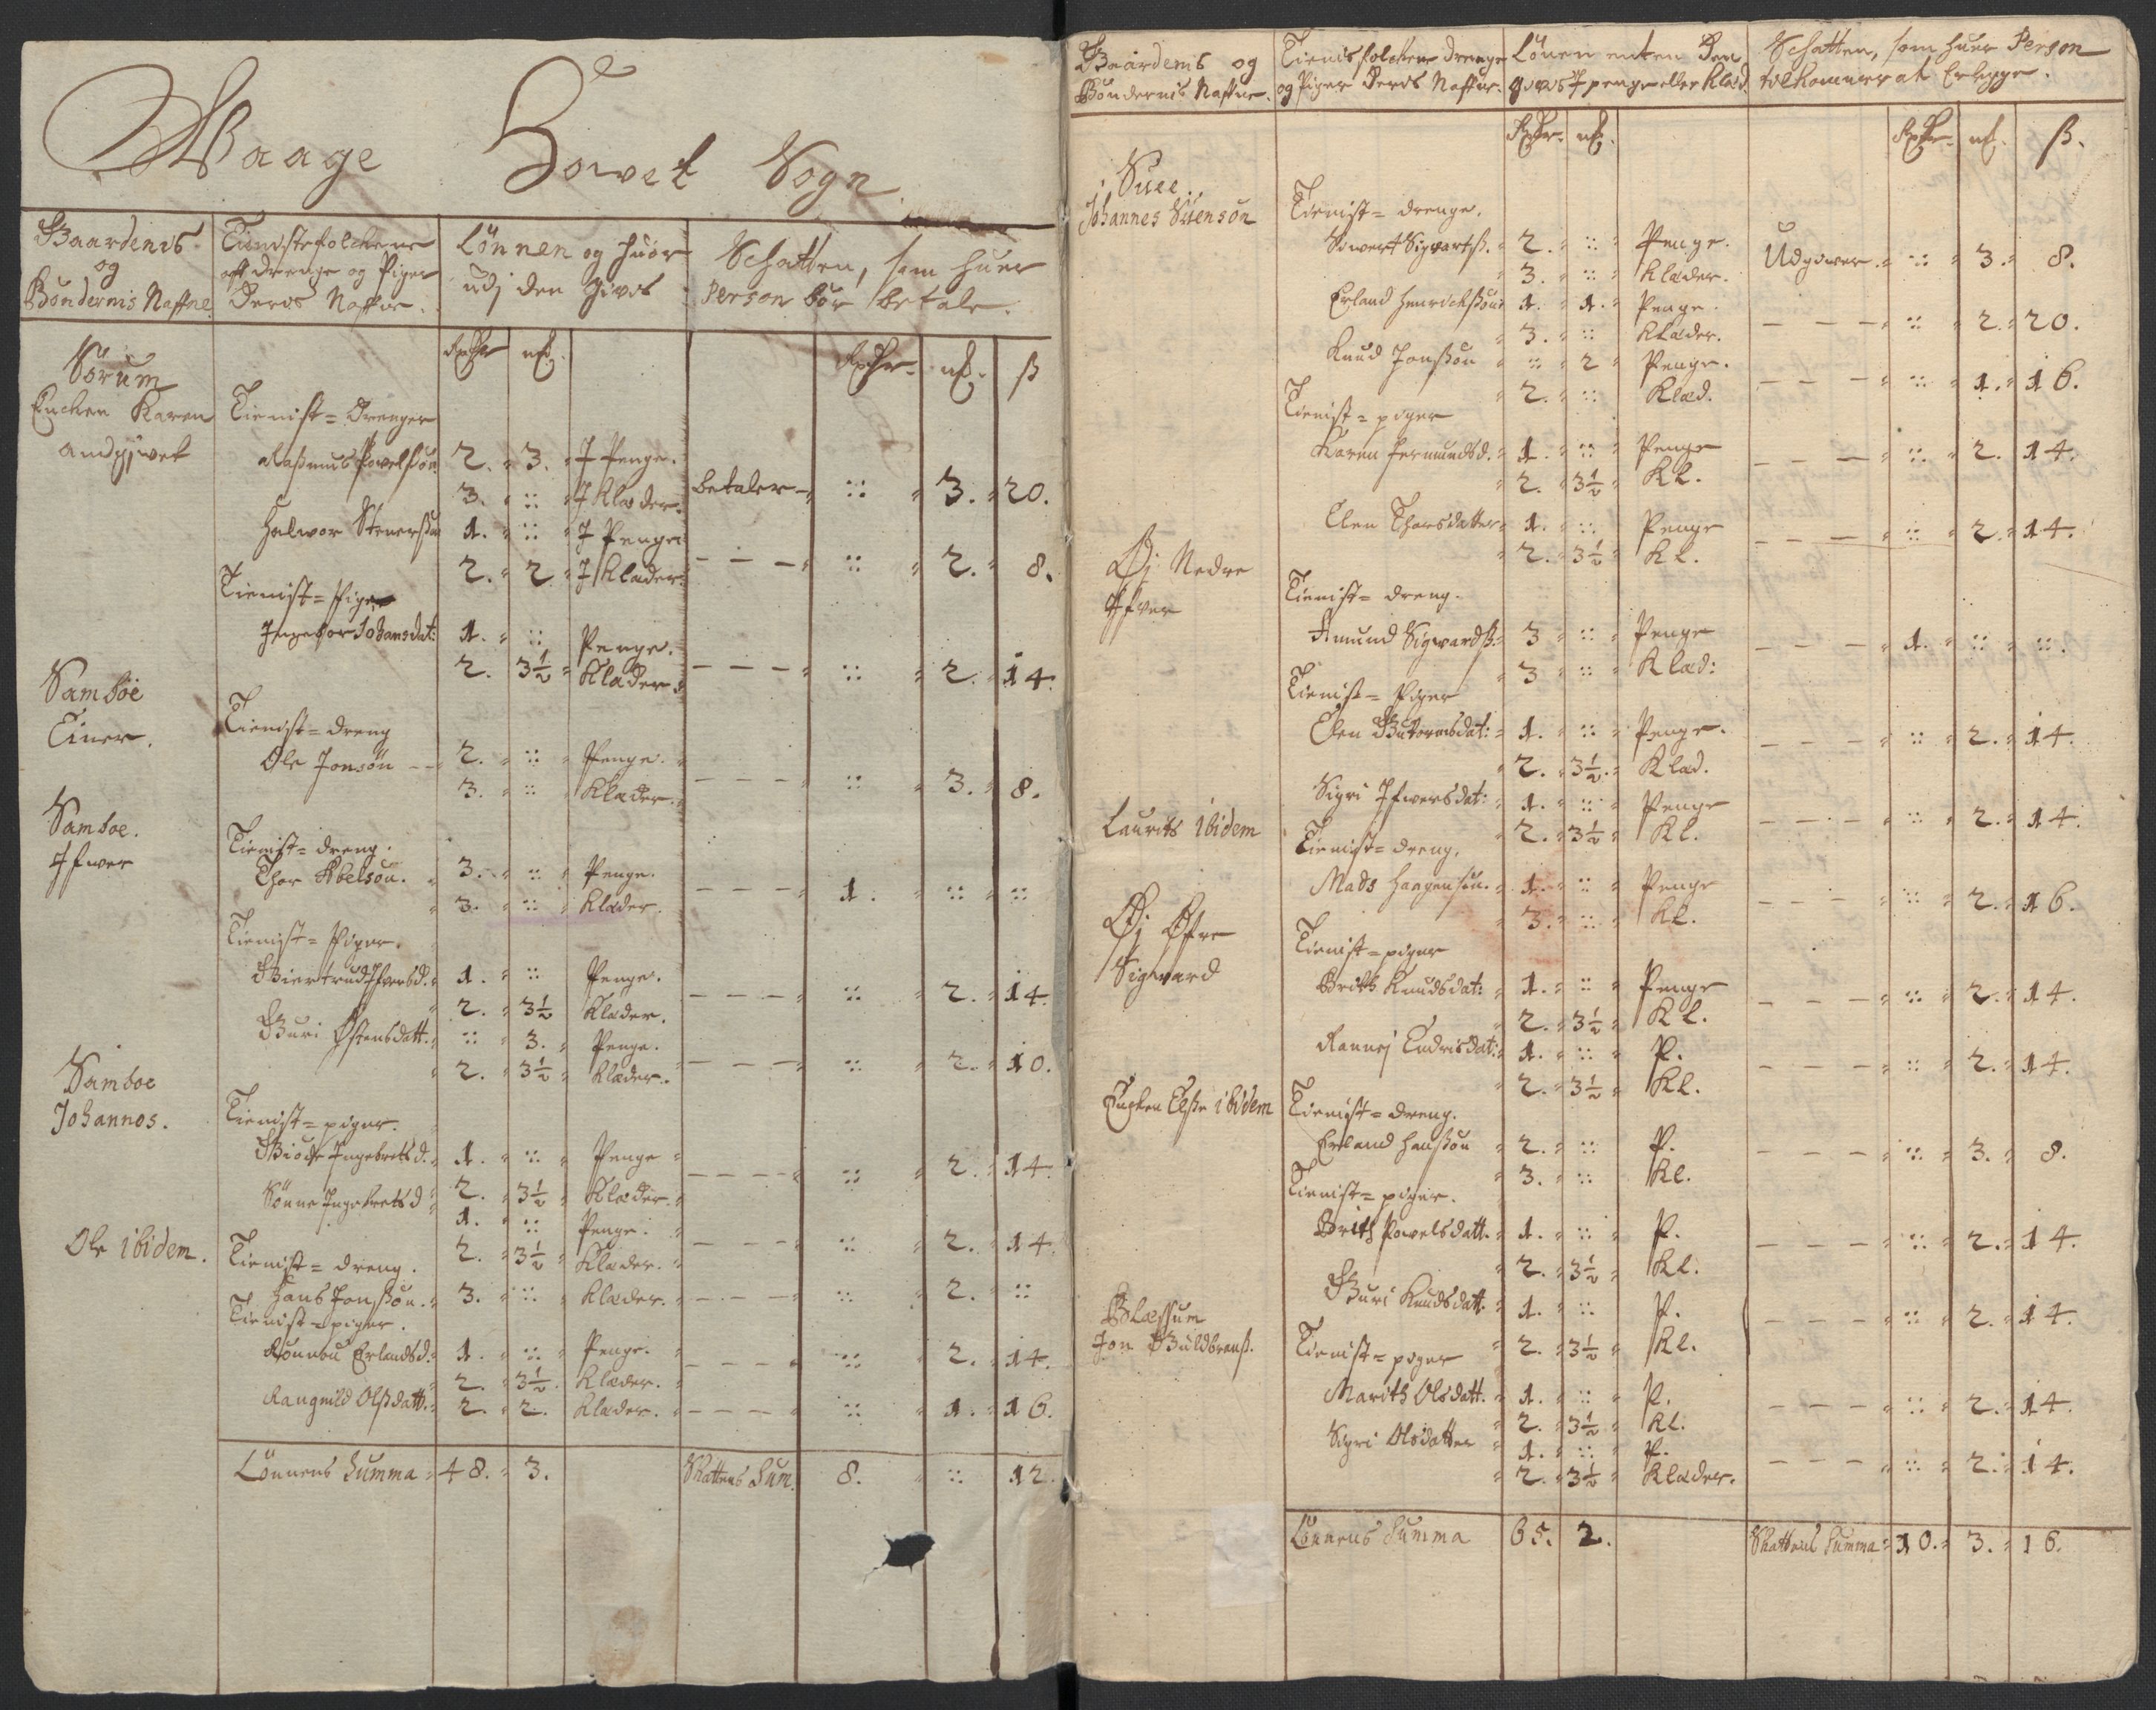 Waage Hovet Sogn
Gaardenis og Bøndernis Naffne.
Tienistefolckene aff drenge og Piger Deris Naffne.
Lønnen og huor udj den givis
Schatten, som huer Person bør betale.
Rixdr mk. Rixdr. mk. ß
Sørum
Enchen Karen
andgivet
Tienist = Drenger
Rasmus Povelsøn 2. 3. J Penge.
3. :: J Klæder. betaler :: 3. 20.
Halvor Stenersøn 1. :: J Penge.
2. 2. J Klæder. – – – :: 2. 8.
Tienist = Piger
Ingebor Johansdat: 1. :: Penge.
2. 3½ Klæder. – – – :: 2. 14.
Sambøe
Einer.
Tienist = dreng
Ole Jonsøn – 2. :: Penge.
3. :: Klæder. – – – :: 3. 8.
Samboe.
Ifwer
Tienist = dreng.
Thor Abelsøn. 3. :: Penge.
3. :: Klæder. – – – 1. :: ::
Tienist = Piger.
Giertrud Ifversd. 1. :: Penge.
2. 3½ Klæder. – – – :: 2. 14.
Guri Østensdatt. :: 3. Penge.
2. 3½ Klæder. – – – :: 2. 10.
Samboe
Johannes.
Tienist = piger.
Giøde Ingebretsd. 1. :: Penge
2. 3½ Klæder. – – – :: 2. 14.
Sønne Ingebretsd 1. :: Penge.
2. 3½ Klæder. – – – :: 2. 14.
Ole ibidem.
Tienist = dreng.
Hans Jonsøn. 3. :: Klæder. – – – :: 2. ::
Tienist = piger.
Rønnou Erlandsd. 1. :: Penge.
2. 3½ Klæder. – – – :: 2. 14.
Rangnild Olsdatt. 2. 2. Klæder. – – – :: 1. 16.
Lønnens Summa 48. 3. Skattens Sum. 8. :: 12.
Gaardenis og Bøndernis Naffne.
Tienistfolckene drenge og Piger Deris Naffne.
Lønen enten Den givis J penge eller Klæd.
Schatten, som huer Person tilkommer at Erlegge.
Rixdr. mk. Rixdr. mk. ß.
Suee.
Johannes Stensøn
Tienist = drenge.
Siwert Sigvartß. 2. :: Penge.
3. :: Klæder. Udgiver :: 3. 8.
Erland Henrichsøn 1. 1. Penge.
3. :: Klæder. – – – :: 2. 20.
Knud Jonsøn :: 2 Penge.
2. :: Klæd. – – – :: 1. 16.
Tienist = piger
Karen Jermundsd. 1. :: Penge
2. 3½ Kl. – – – :: 2. 14.
Elen Thorsdatter 1. :: Penge
2. 3½ Kl. – – – :: 2. 14.
Øj Nedre
Ifver
Tienist = dreng.
Amund Sigvardß. 3 :: Penge
3 :: Klæd: – – – 1. :: ::
Tienist = Piger
Elen Gutormsdat: 1. :: Penge.
2. 3½ Klæd. – – – :: 2. 14.
Sigri Ifwersdat: 1. :: Penge
2. 3½ Kl. – – – :: 2. 14.
Laurits ibidem
Tienist = dreng.
Mads Haagensøn. 1. :: Penge
3. :: Kl. – – – :: 2. 16.
Øj Øfre
Sigvard
Tienist = piger
Brith Knudsdat: 1. :: Penge
2. 3½ Kl. – – – :: 2. 14.
Rannej Endrisdat: 1. :: P.
2. 3½ Kl. – – – :: 2. 14.
Enchen Elße ibidem
Tienist = dreng.
Erland Hansøn 2. :: P.
3. :: Kl. – – – :: 3. 8.
Tienist = piger.
Brith Powelsdatt. 1. :: P.
2. 3½ Kl. – – – :: 2. 14.
Guri Knudsdatt. 1. :: P.
2. 3½ Kl. – – – :: 2. 14.
Blæssum
Jon Guldbranß.
Tienist = piger
Marith Olsdatt. 1. :: P.
2. 3½ Kl. – – – :: 2. 14.
Sigri Olsdatter 1. :: P.
2. 3½ Klæder. – – – :: 2. 14.
Lønnens Summa 65. 2. Skattens Summa 10. 3. 16.